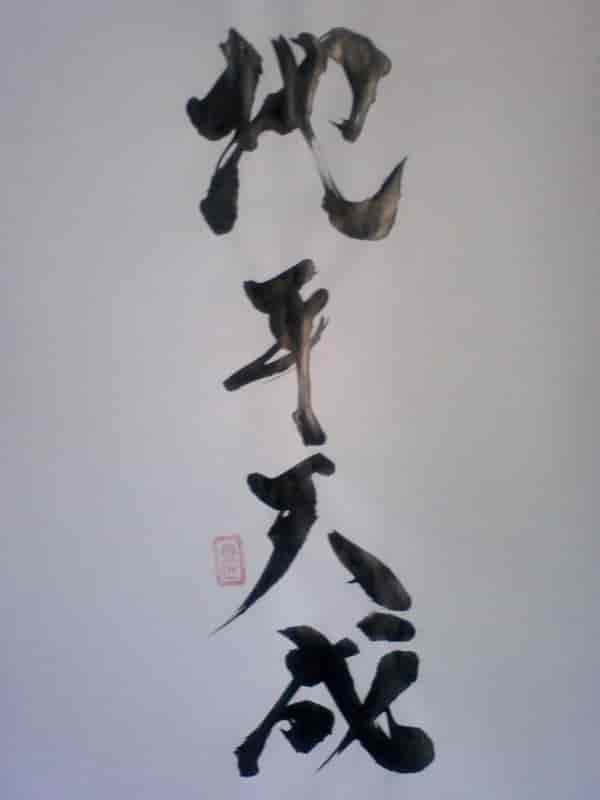 地平天成